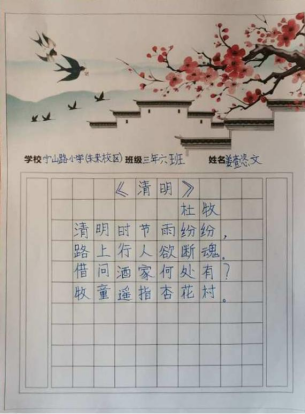 学校 中山路小学(东校区) 班级 三年六班 姓名 文
《清明》
杜牧
清明时节雨纷纷，
路上行人欲断魂。
借问酒家何处有？
牧童遥指杏花村。